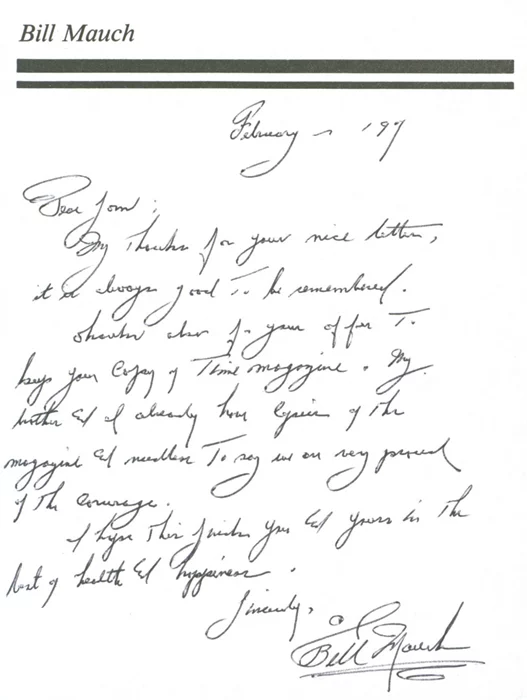 Bill Mauch
February ~ 197
Dear Tom:
My thanks for your nice letter,
it is always good To be remembered.
thanks also for your offer To
keep your copy of Time magazine. My
brother & I already have copies of the
magazine & needless To say we are very proud
of The coverage.
I hope This finds you & yours in The
best of health & happiness.
Sincerely,
Bill Mauch